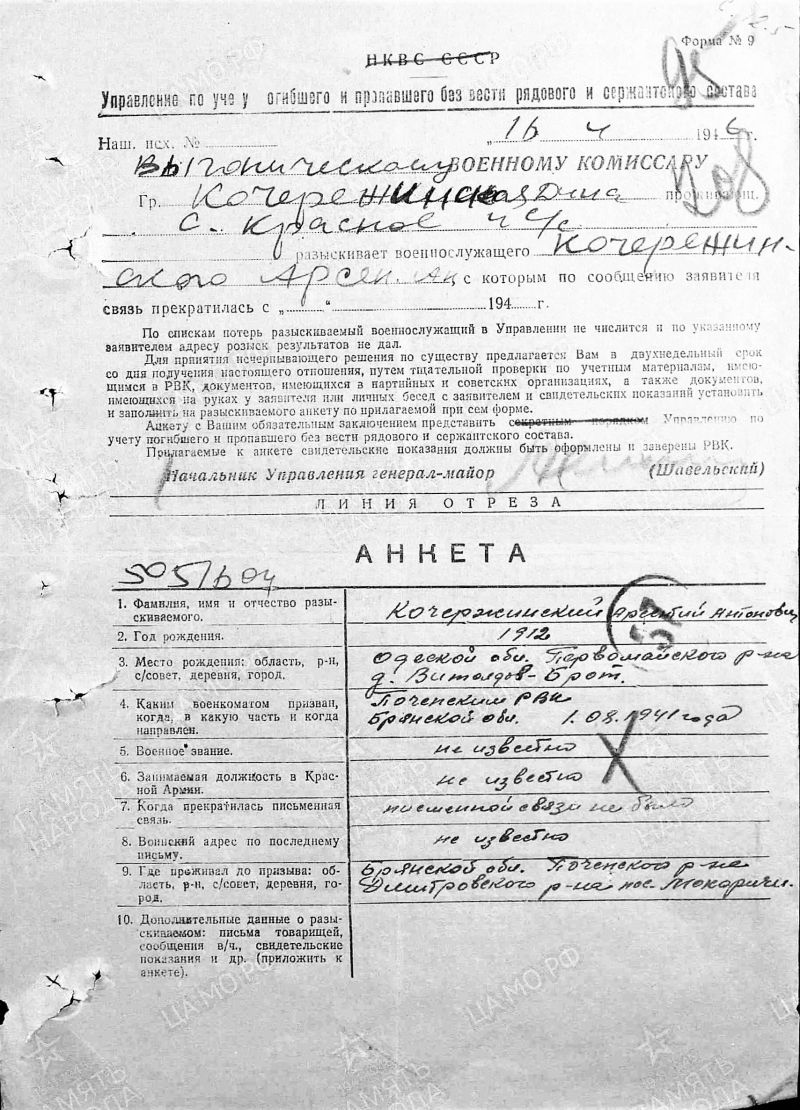 Форма № 9
НКВС СССР
95
Управление по уче у огибшего и пропавшего без вести рядового и сержантского состава
Наш. исх. № „16 4 1946 г.
Выгоническому ВОЕННОМУ КОМИССАРУ
208
Гр. Кочережинская проживающ.
с. Красное
разыскивает военнослужащего Кочережин-
ского Арсен. Ан, с которым по сообщению заявителя
связь прекратилась с „ “ 194 г.
По спискам потерь разыскиваемый военнослужащий в Управлении не числится и по указанному
заявителем адресу розыск результатов не дал.
Для принятия исчерпывающего решения по существу предлагается Вам в двухнедельный срок
со дня получения настоящего отношения, путем тщательной проверки по учетным материалам, имею-
щимся в РВК, документов, имеющихся в партийных и советских организациях, а также документов,
имеющихся на руках у заявителя или личных бесед с заявителем и свидетельских показаний установить
и заполнить на разыскиваемого анкету по прилагаемой при сем форме.
Анкету с Вашим обязательным заключением представить секретным порядком Управлению по
учету погибшего и пропавшего без вести рядового и сержантского состава.
Прилагаемые к анкете свидетельские показания должны быть оформлены и заверены РВК.
Начальник Управления генерал-майор (Шавельский)
ЛИНИЯ ОТРЕЗА
АНКЕТА
1. Фамилия, имя и отчество разы-
скиваемого.
Кочержинский Арсентий Антонович
2. Год рождения.
1912
3. Место рождения: область, р-н,
с/совет, деревня, город.
Одеской обл. Первомайского р-на
д. Витолдов-Брот.
4. Каким военкоматом призван,
когда, в какую часть и когда
направлен.
Поченским РВК
Брянской обл. 1.08.1941 года
5. Военное звание.
не известно
6. Занимаемая должность в Крас-
ной Армии.
не известно
7. Когда прекратилась письменная
связь.
писменной связи не было
8. Воинский адрес по последнему
письму.
не известно
9. Где проживал до призыва: об-
ласть, р-н, с/совет, деревня, го-
род.
Брянской обл. Поченского р-на
Димитровского р-на пос. Мокаричи.
10. Дополнительные данные о разы-
скиваемом: письма товарищей,
сообщения в/ч., свидетельские
показания и др. (приложить к
анкете).
ЦАМО.РФ
ПАМЯТЬ
НАРОДА